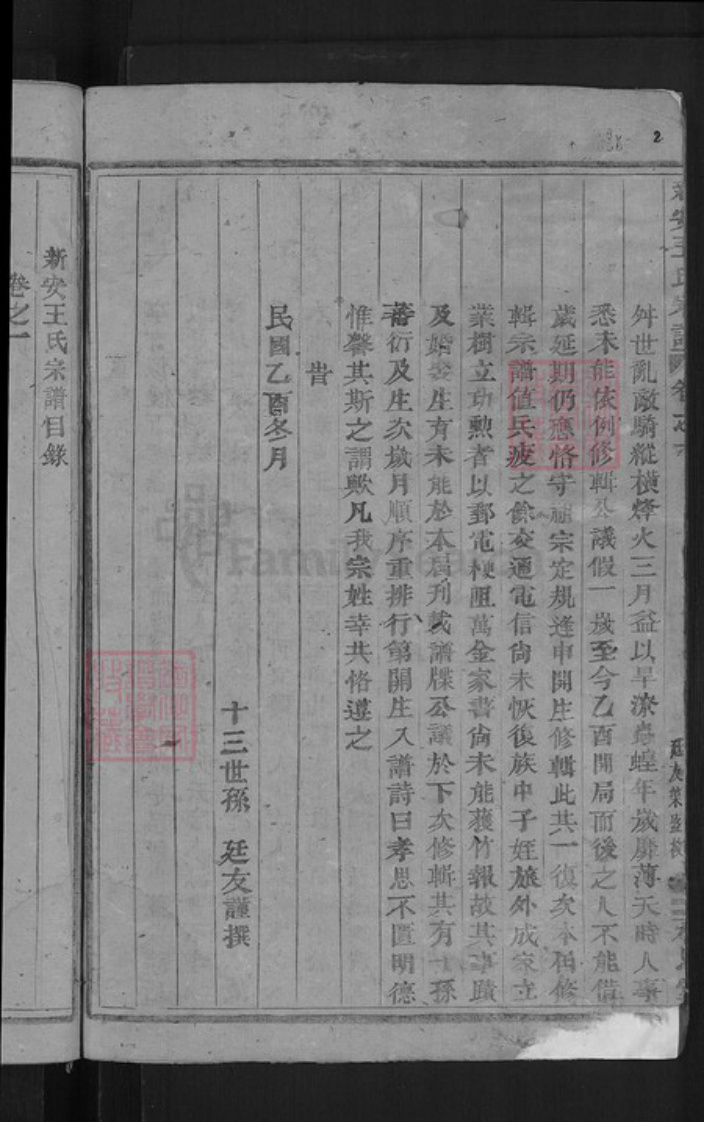 2
安王氏宗譜 卷之
舛世亂敵騎縱橫烽火三月益以旱潦蟲蝗年歲屢薄天時人事
悉未能依例修輯公議假一歲至今乙酉開局而後之人不能借
歲延期仍應恪守祖宗定規逢申開生修輯此共一復次本屆修
輯宗譜值兵疲之餘交通電信尚未恢復族中子姪旅外成家立
業樹立功勲者以郵電梗阻萬金家書尚未能獲竹報故其事蹟
及婚娶生育未能於本屆刋載譜牒公議於下次修輯其有子孫
蕃衍及生次歲月順序重排行第開生入譜詩曰孝思不匱明德
惟馨其斯之謂歟凡我宗姓幸共恪遵之
旹
民國乙酉冬月
十三世孫 廷友謹撰
新安王氏宗譜目錄
卷之一